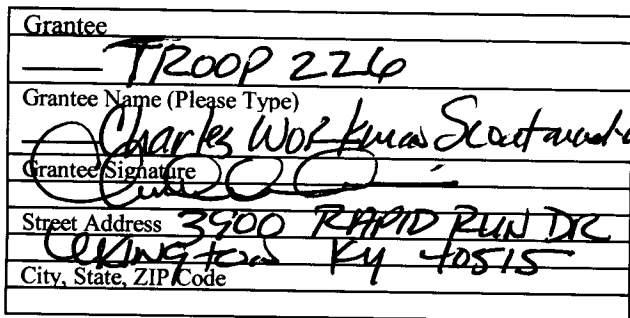 Grantee
TROOP 226
Grantee Name (Please Type)
Charles Workman Scoutmaster
Grantee Signature
Street Address 3900 RAPID RUN DR
Lexington KY 40515
City, State, ZIP Code